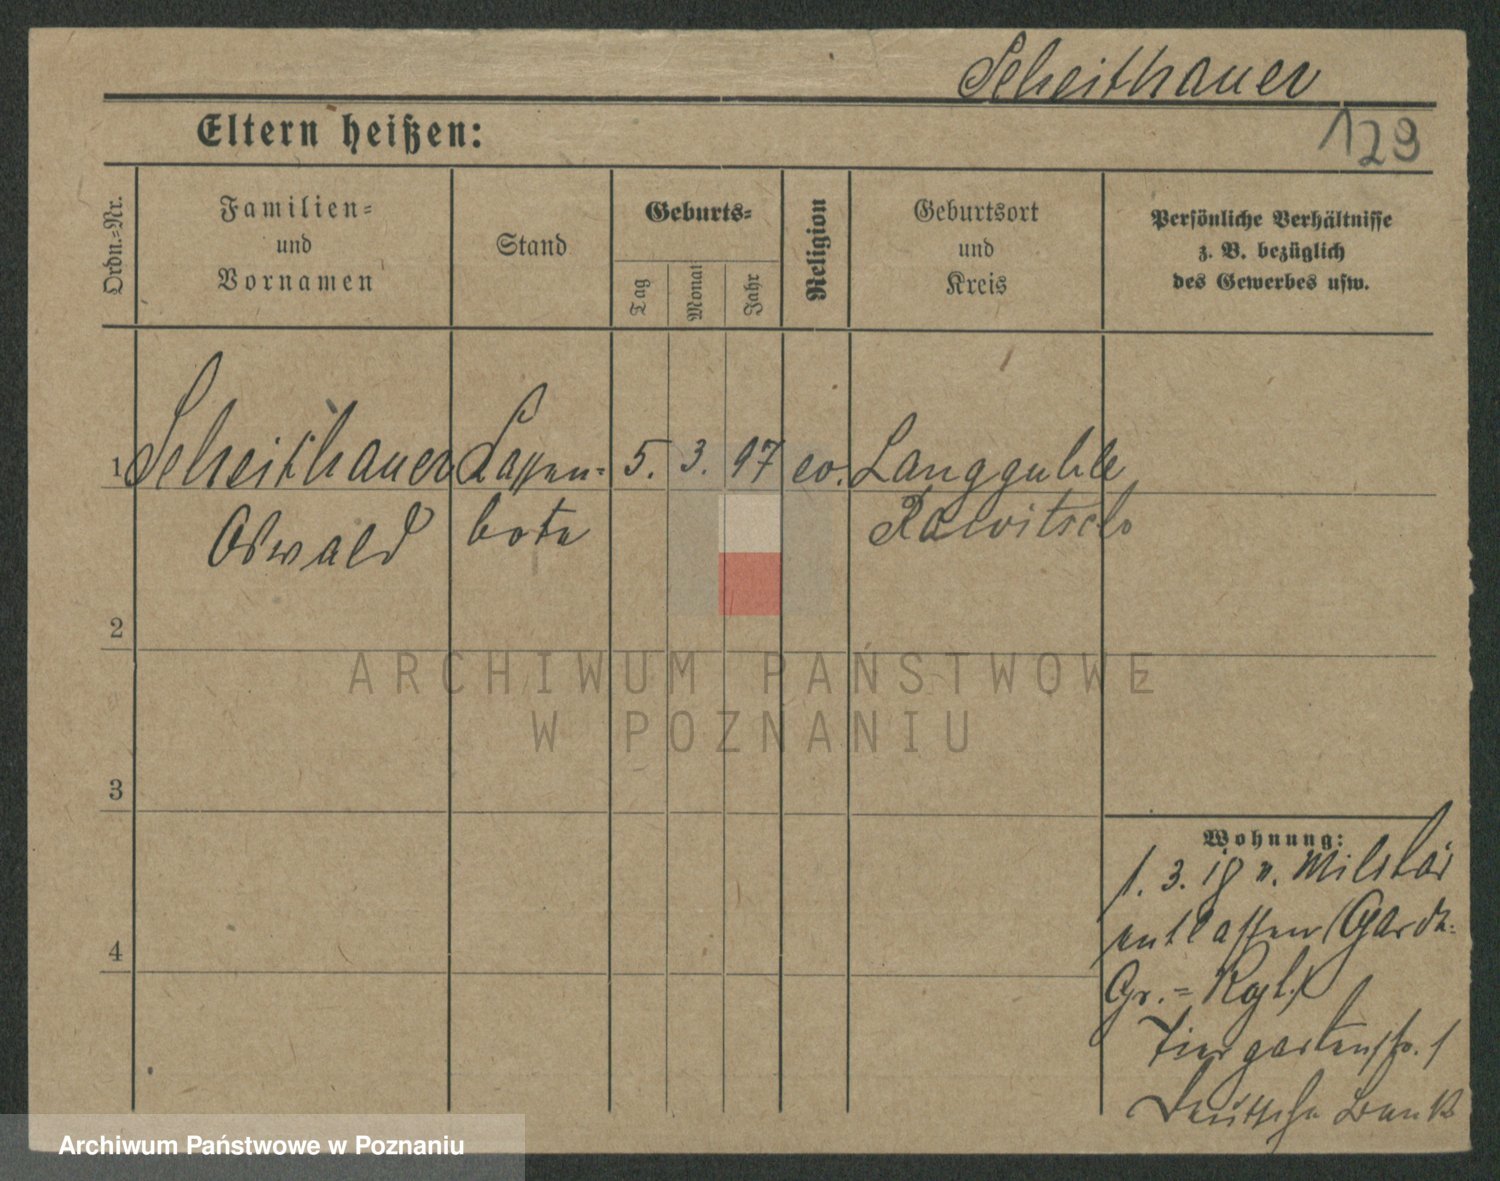 Scheithauer
Eltern heißen:
129
Ordn.=Nr.
Familien=
und
Vornamen
Stand
Geburts=
Tag
Monat
Jahr
Religion
Geburtsort
und
Kreis
Persönliche Verhältnisse
z. B. bezüglich
des Gewerbes usw.
1 Scheithauer Kassen= 5. 3. 97 ev. Langguhle
Oswald bote Rawitsch
2
3
4
Wohnung:
1. 3. 19 v. Militär
entlassen (Garde=
Gr.=Rgt.)
Tiergartenstr. 1
Deutsche Bank
ARCHIWUM PAŃSTWOWE
W POZNANIU
Archiwum Państwowe w Poznaniu